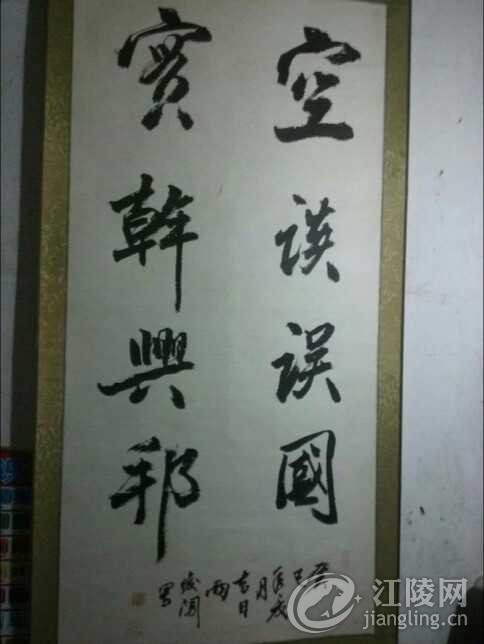 空谈误國
實幹興邦
吉日
江陵网
jiangling.cn